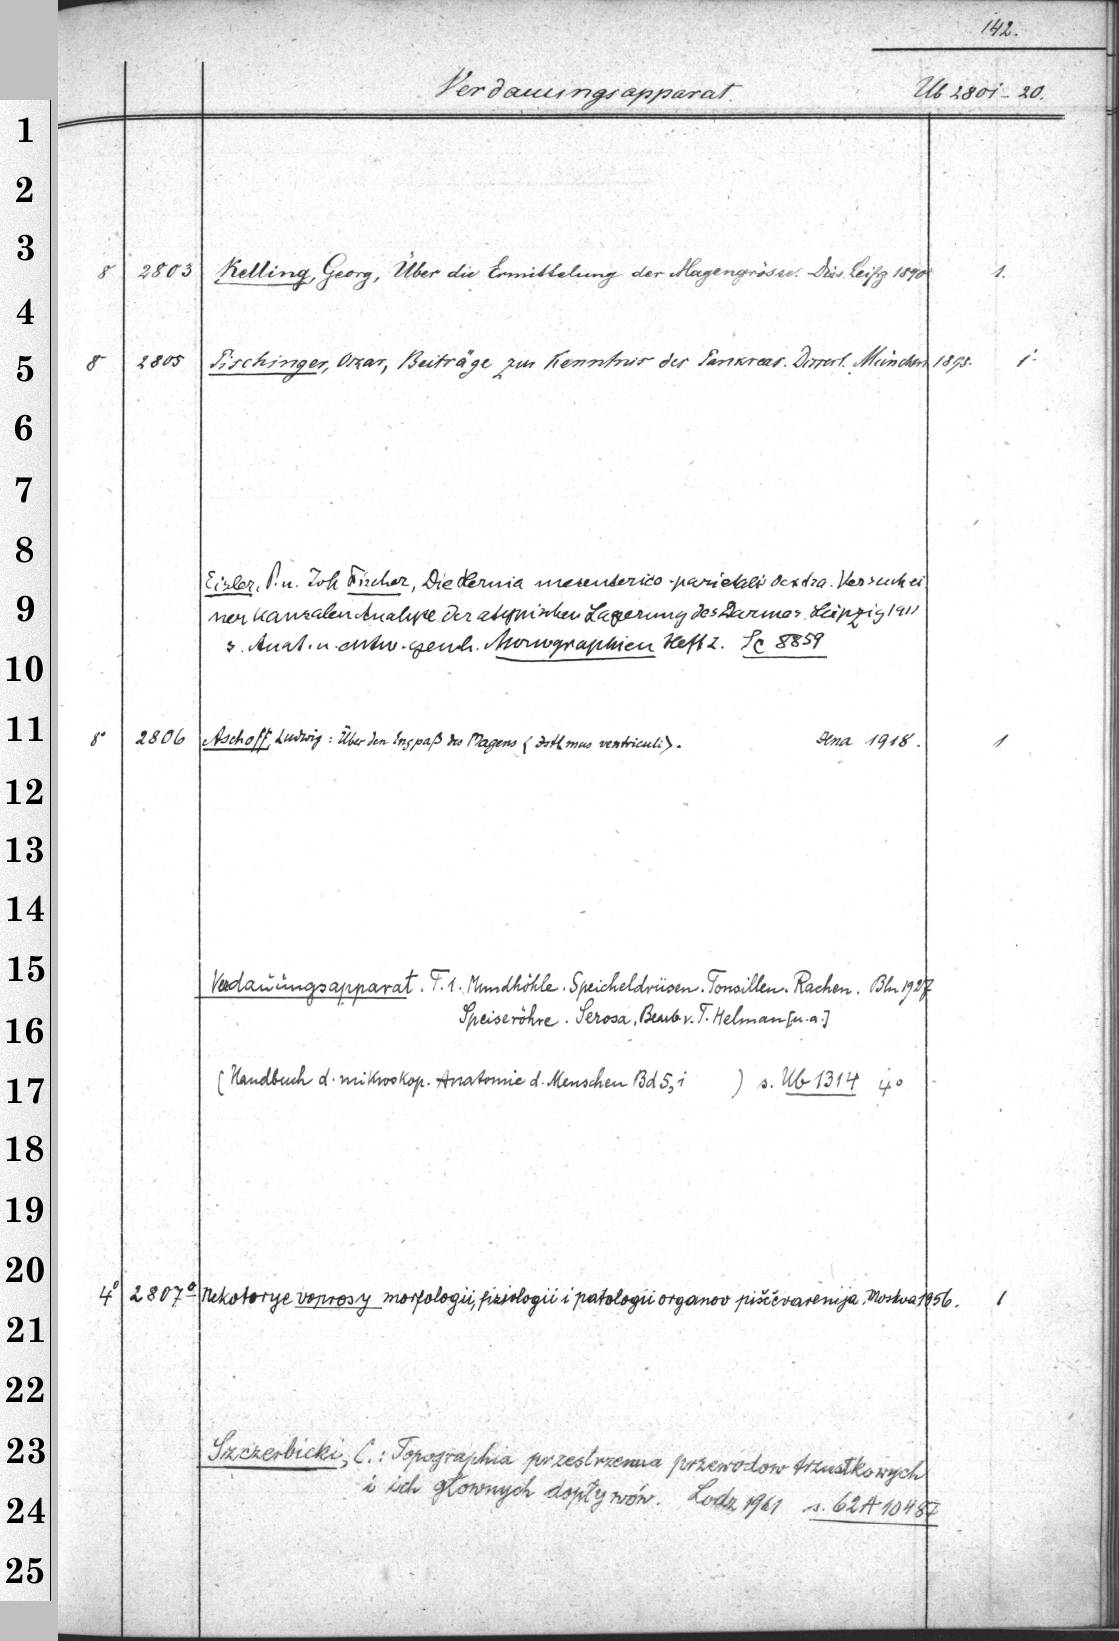 142.
Verdauungsapparat. Ub 2801-20.
1
2
3
8 2803 Kelling, Georg, Über die Ermittelung der Magengrösse. Diss. Leipzg 1890 1.
4
8 2805 Tischinger, Oskar, Beiträge zur Kenntnis des Pankreas. Dissert. München 1895. 1
5
6
7
8
Eisler, P. u. Joh Fischer, Die Hernia mesenterico-parietalis dextra. Versuch ei
9
ner kausalen Analyse der atypischen Lagerung des Darmes. Leipzig 1911
s. Anat. u. entw. gesch. Monographien Heft 2. Sc 8859
10
11
8° 2806 Aschoff, Ludwig: Über den Engpaß des Magens (Isthmus ventriculi). Jena 1918. 1
12
13
14
15
Verdauungsapparat. T. 1. Mundhöhle. Speicheldrüsen. Tonsillen. Rachen. Bln 1927
Speiseröhre. Serosa. Bearb v. T. Helman [u.a.]
16
17
(Handbuch d. mikroskop. Anatomie d. Menschen Bd 5,1 ) s. Ub 1314 4°
18
19
20
4° 2807° Nekotorye voprosy morfologii, fiziologii i patologii organov piščevarenija. Moskva 1956. 1
21
22
23
Szczerbicki, C.: Topographia przestrzenna przewodow trzustkowych
i ich głownych dopływów. Lodz 1961 s. 62 A 10487
24
25